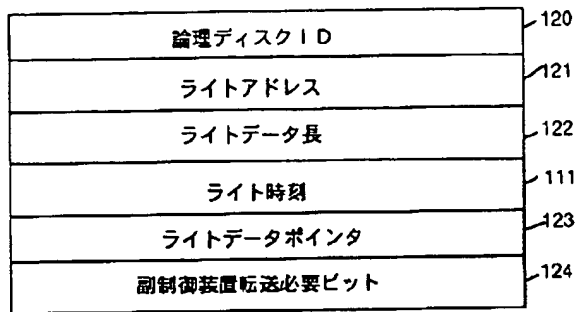 論理ディスクID 120
ライトアドレス 121
ライトデータ長 122
ライト時刻 111
ライトデータポインタ 123
副制御装置転送必要ビット 124